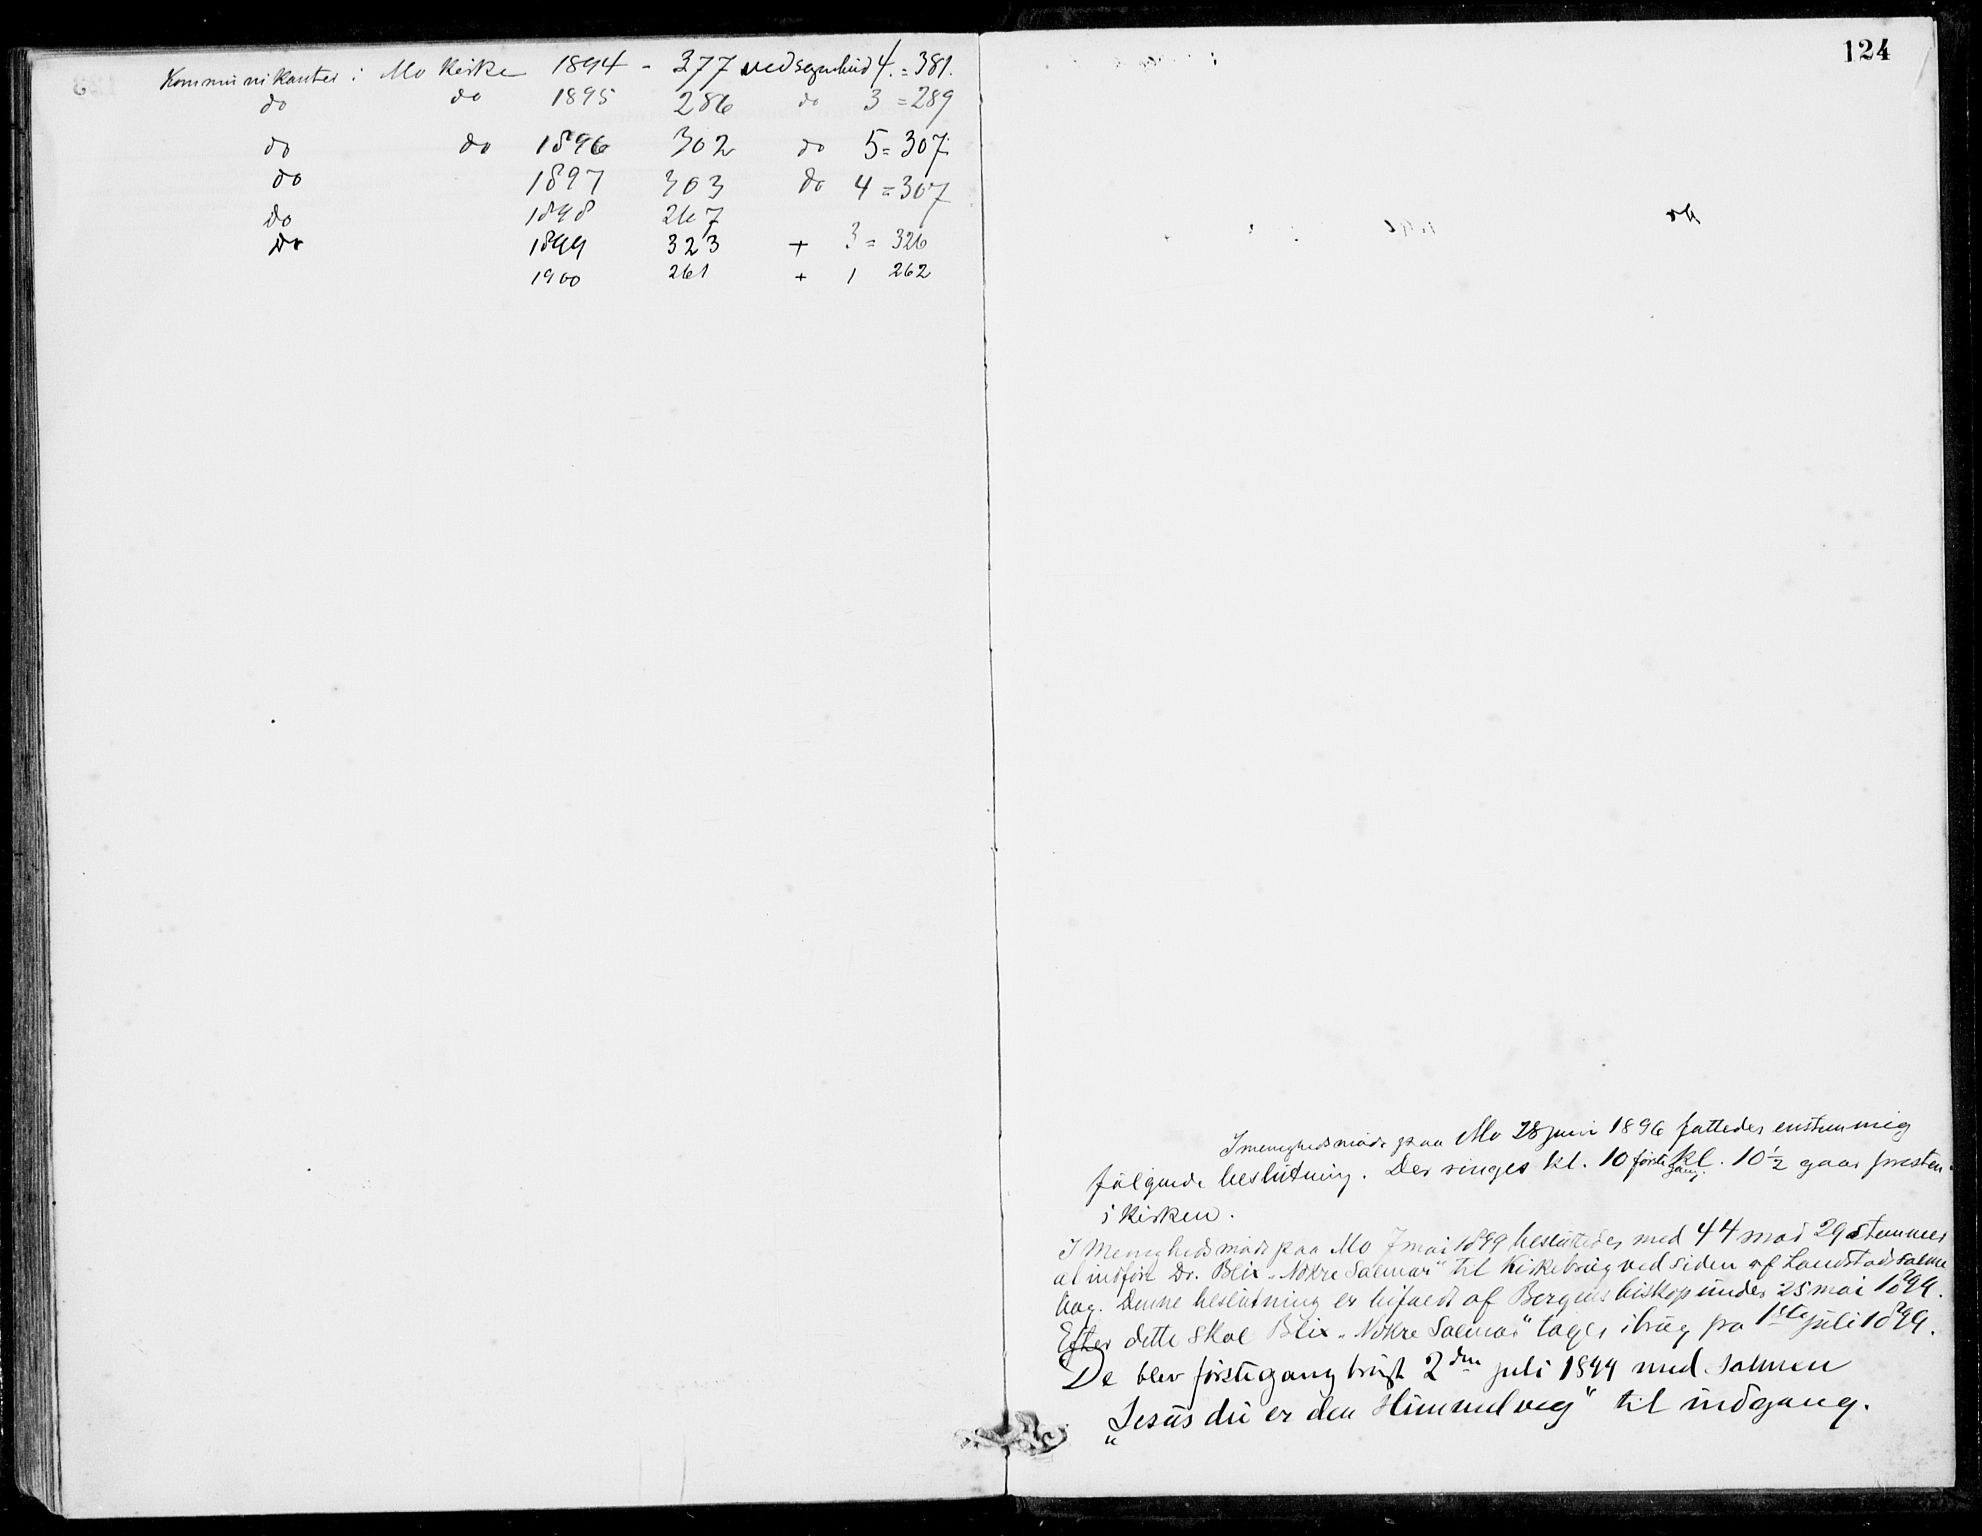 Kommunikanter i Mo Kirke 1894 - 377 ved sognebud 4. = 381.
do do 1895 286 do 3 = 289
do do 1896 302 do 5 = 307
do 1897 303 do 4 = 307
Do 1898 267
Do 1899 323 + 3 = 326
1900 261 + 1 262
124
I menighedsmøde paa Mo 28 juni 1896 fattedes enstemmig
følgende beslutning. Der ringes kl. 10 første gang. kl. 10 1/2 gaar presten
i kirken.
I Menighedsmøde paa Mo 7 mai 1899 besluttedes med 44 mod 29 stemmer
at indføre Dr. Blix „Nokre Salmar“ til Kirkebrug ved siden af Landstads salme
bog. Denne beslutning er bifaldt af Bergens biskop under 25 mai 1899.
Efter dette skal Blix „Nokre Salmar“ tages i brug fra 1ste juli 1899.
De blev første gang brugt 2den juli 1899 med salmen
„Jesus du er den Himmelveg“ til indgang.